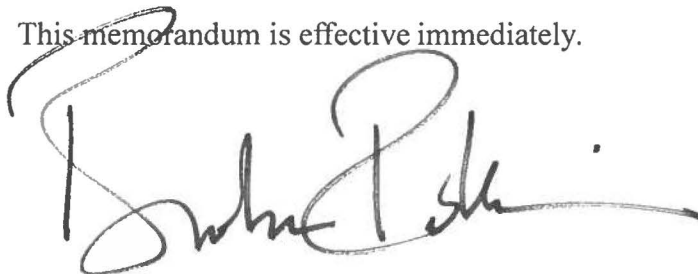 This memorandum is effective immediately.